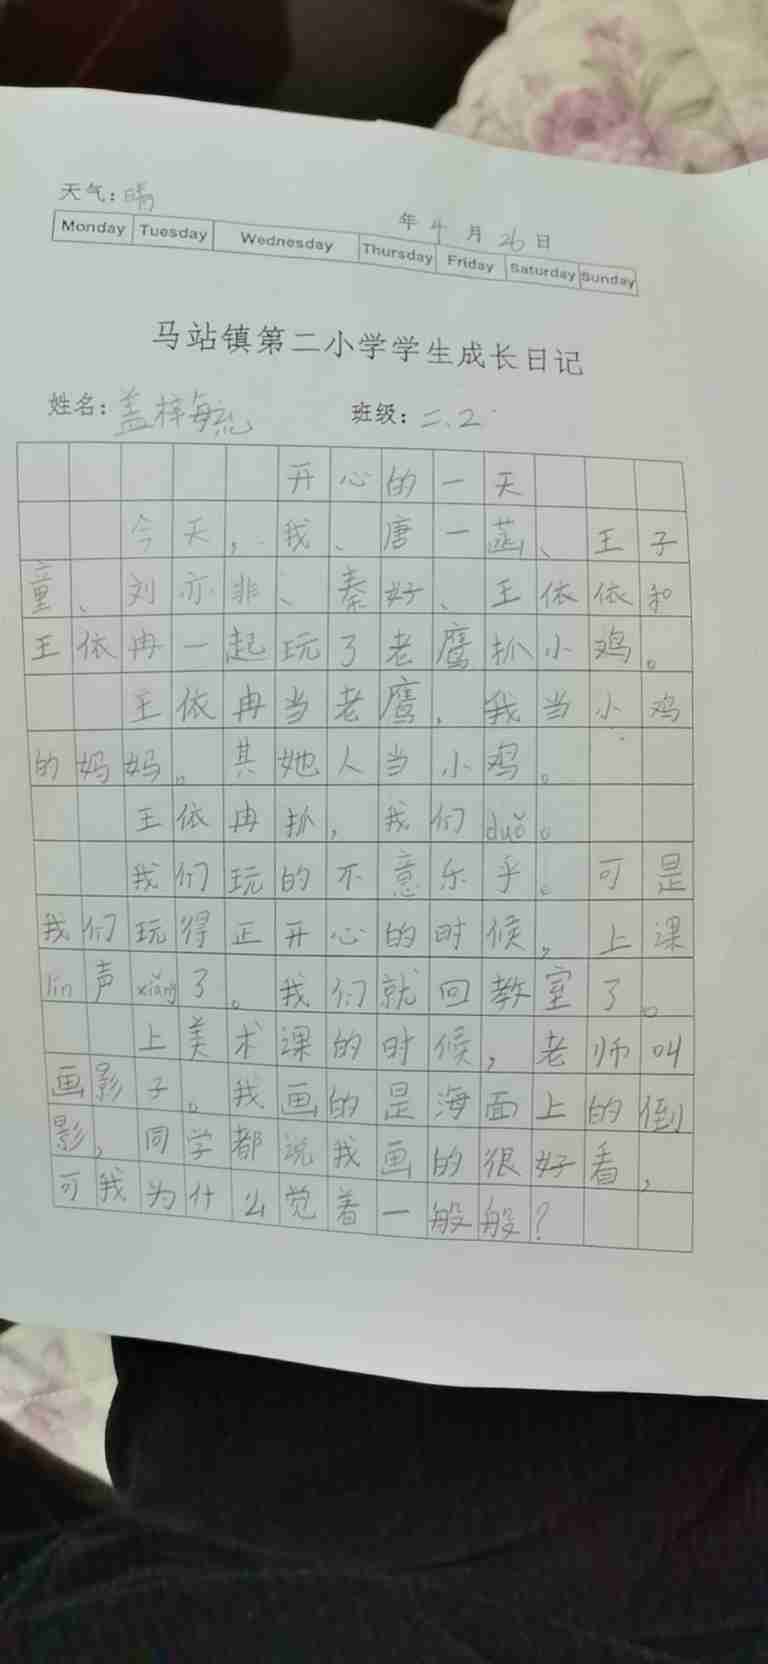 天气：晴
年 4 月 26 日
Monday Tuesday Wednesday Thursday Friday Saturday Sunday
马站镇第二小学学生成长日记
姓名：盖梓毓 班级：二.2
开心的一天
今天，我、唐一菡、王子
童、刘亦非、秦好、王依依和
王依冉一起玩了老鹰抓小鸡。
王依冉当老鹰，我当小鸡
的妈妈。其她人当小鸡。
王依冉抓，我们duǒ。
我们玩的不意乐乎。可是
我们玩得正开心的时候，上课
lín声xiǎng了。我们就回教室了。
上美术课的时候，老师叫
画影子。我画的是海面上的倒
影，同学都说我画的很好看，
可我为什么觉着一般般？